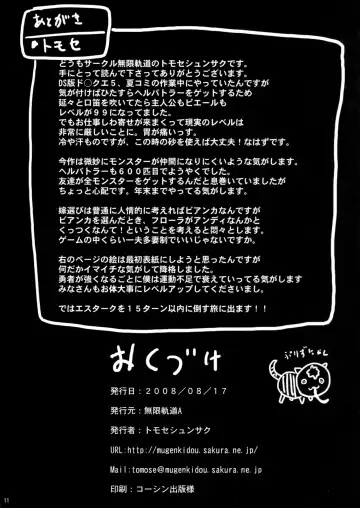 あとがき
・トモセ
どうもサークル無限軌道のトモセシュンサクです。
手にとって読んで下さってありがとうございます。
DS版ド○クエ5、夏コミの作業中にやっていたんですが
気が付けばひたすらヘルバトラーをゲットするため
延々と口笛を吹いてたら主人公もピエールも
レベルが99になってました。
でもお仕事しわ寄せが来まくって現実のレベルは
非常に厳しいことに。胃が痛いっす。
冷や汗ものですが、この時の砂を使えば大丈夫！なはずです。
今作は微妙にモンスターが仲間になりにくいような気がします。
ヘルバトラーも600匹目でようやくでした。
友達が全モンスターをゲットするんだと息巻いていましたが
ちょっと心配です。年末までやってる気がします。
嫁選びは普通に人情的に考えればビアンカなんですが
ビアンカを選んだとき、フローラがアンディなんかと
くっつくなんて！ということを考えると悶々とします。
ゲームの中くらい一夫多妻制でいいじゃないですか。
右のページの絵は最初表紙にしようと思ったんですが
何だかイマイチな気がして降格しました。
勇者が強くなるごとに僕は運動不足で衰えていってる気がします
みなさんもお体大事にレベルアップしてくださいまし。
ではエスタークを15ターン以内に倒す旅に出ます！！
おくづけ
ぷりずにゃん
発行日：2008/08/17
発行元：無限軌道A
発行者：トモセシュンサク
URL:http://mugenkidou.sakura.ne.jp/
Mail:tomose@mugenkidou.sakura.ne.jp
印刷：コーシン出版様
11